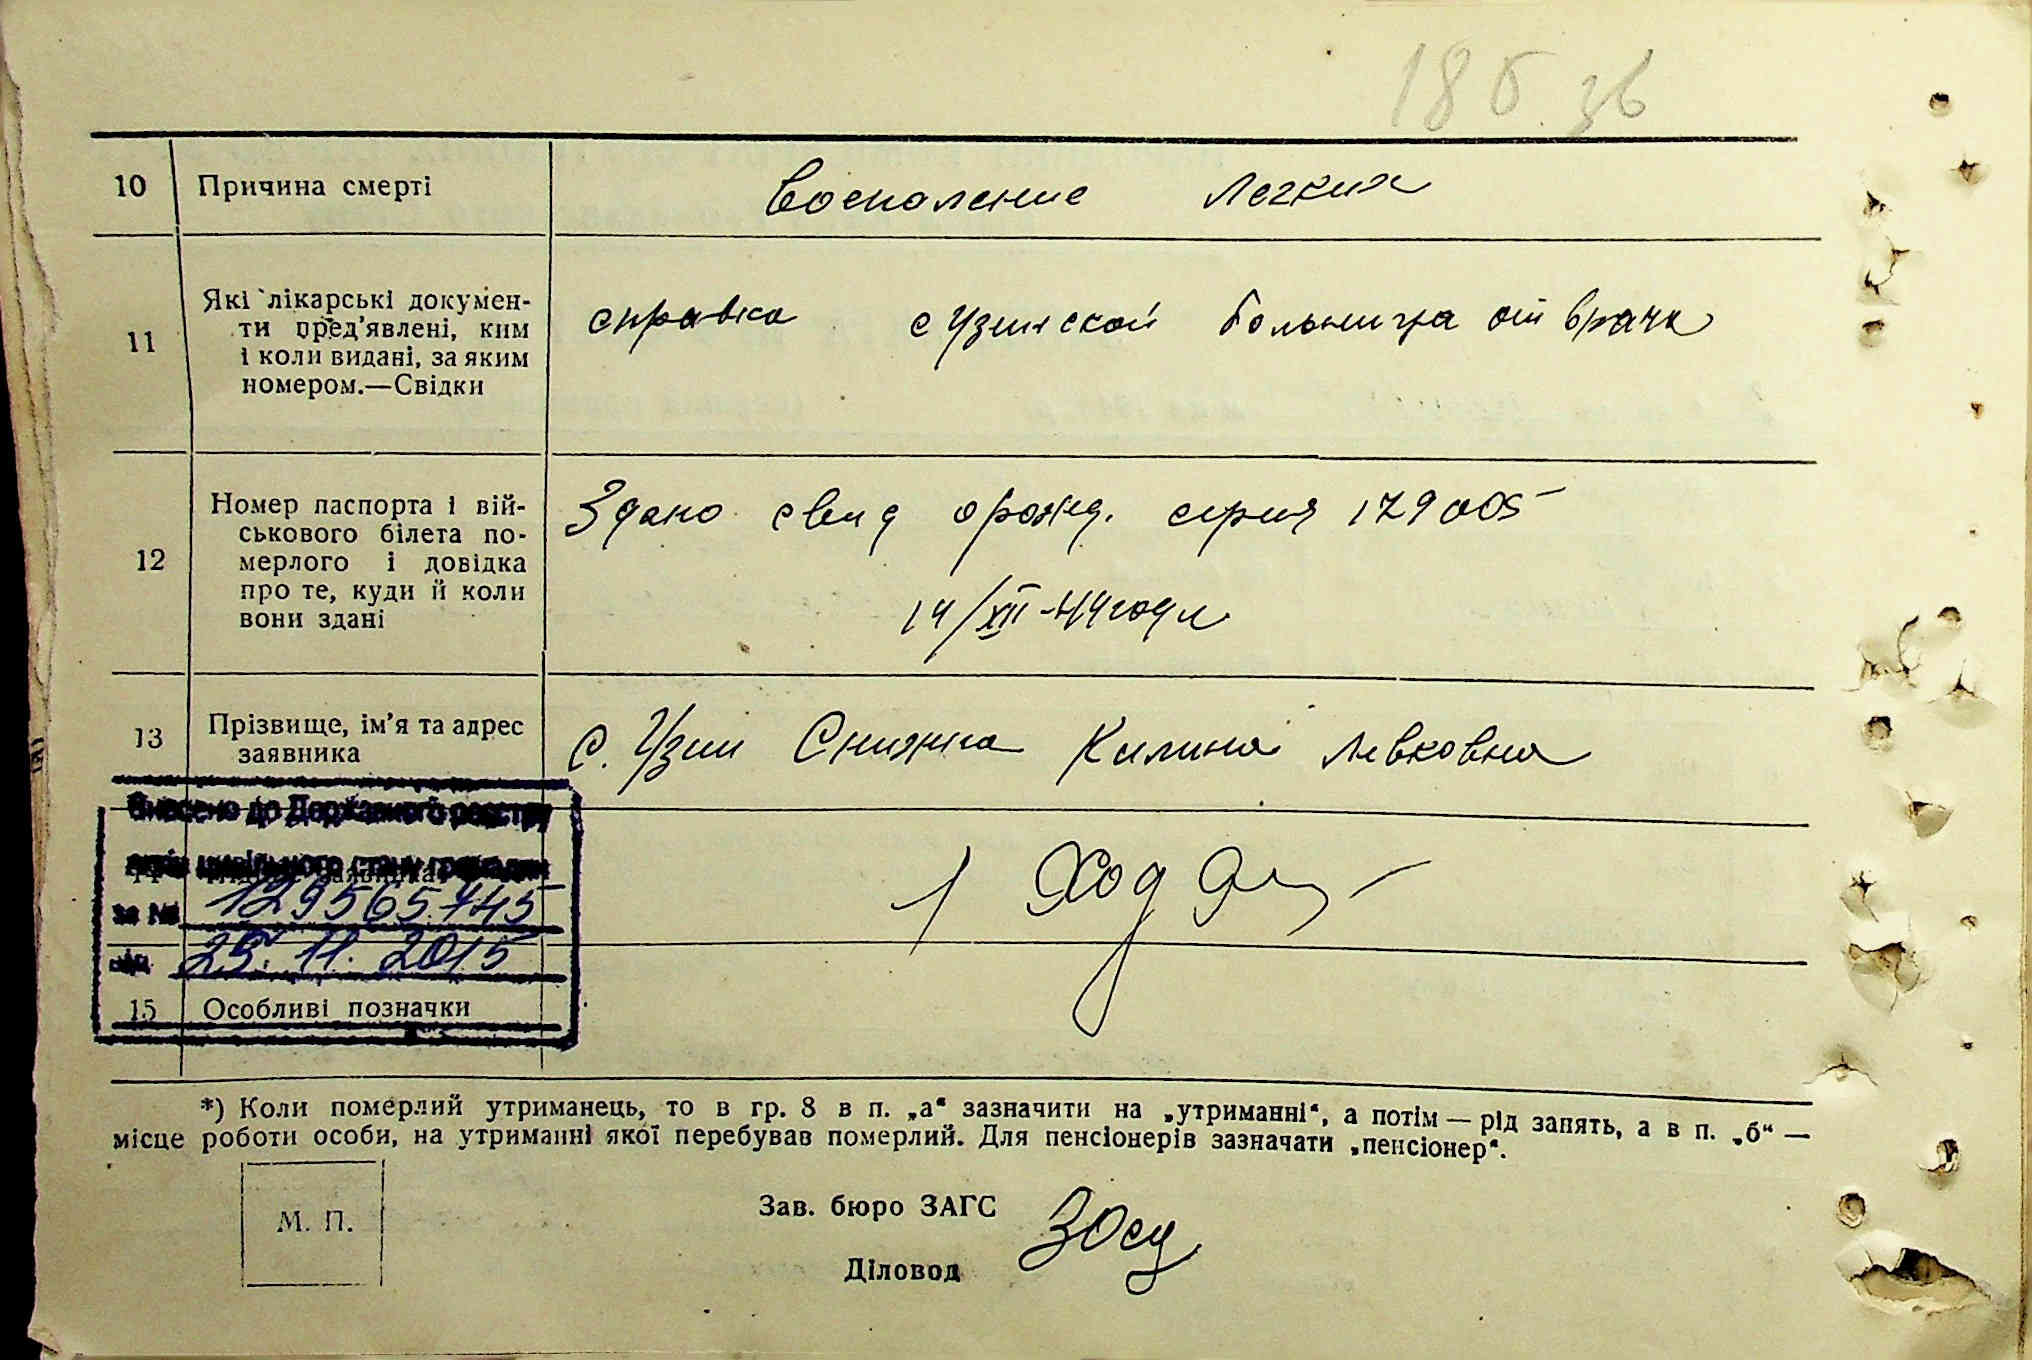 18б зв
10 Причина смерті Воспаление легких
11 Які лікарські докумен-
ти пред’явлені, ким
і коли видані, за яким
номером.—Свідки
справка с Узинской больница от врача
12 Номер паспорта і вій-
ськового білета по-
мерлого і довідка
про те, куди й коли
вони здані
Здано свид о рожд. серия 179005
14/XII-44 года
13 Прізвище, ім’я та адрес
заявника
с. Узин Килина Левковна
Внесено до Державного реєстру
актів цивільного стану громадян
за № 129565745
від 25.11.2015
15 Особливі позначки
*) Коли померлий утриманець, то в гр. 8 в п. „а“ зазначити на „утриманні“, а потім — рід занять, а в п. „б“ —
місце роботи особи, на утриманні якої перебував померлий. Для пенсіонерів зазначати „пенсіонер“.
М. П.
Зав. бюро ЗАГС
Діловод